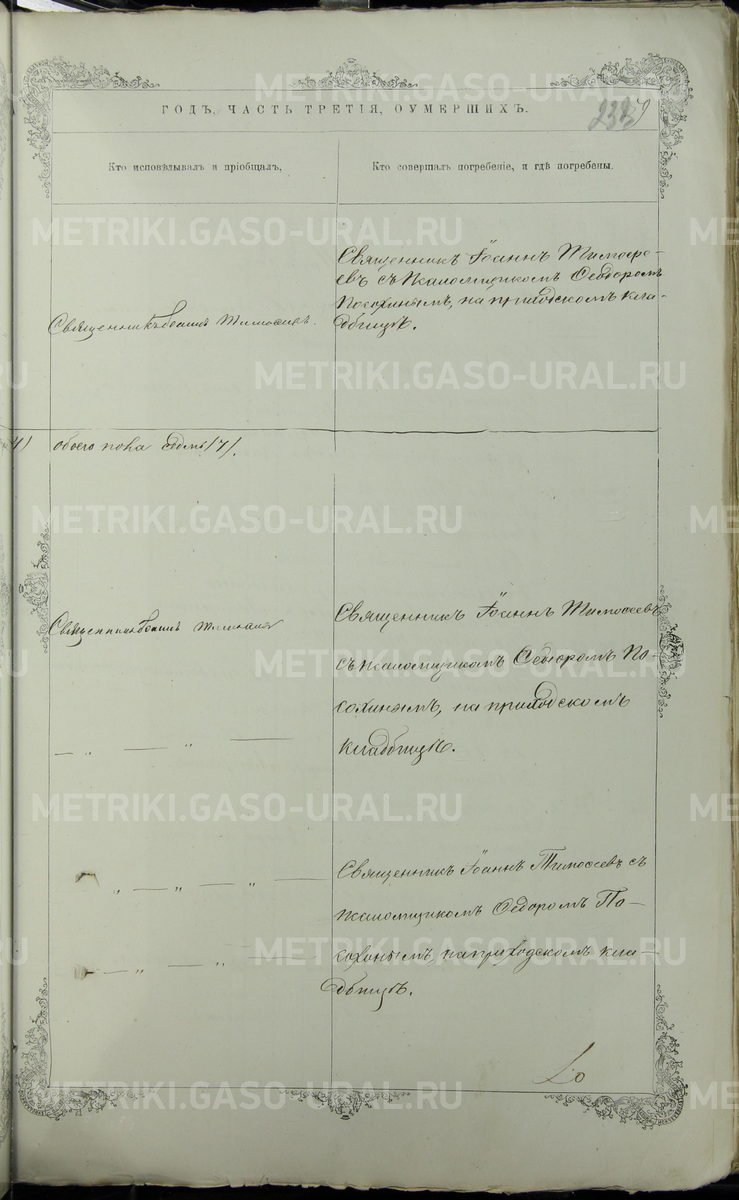 ГОДЪ, ЧАСТЬ ТРЕТІЯ, О УМЕРШИХЪ.
Кто исповѣдывалъ и пріобщалъ,
Кто совершалъ погребеніе, и гдѣ погребены.
Священникъ Іоаннъ Тимофе-
евъ съ псаломщикомъ Ѳедоромъ
Посохинымъ, на приходскомъ кла-
дбищѣ.
Священникъ Іоаннъ Тимофеевъ.
обоего пола седмь /7/.
Священникъ Іоаннъ Тимофеевъ
Священникъ Іоаннъ Тимофеевъ
съ псаломщикомъ Ѳедоромъ По-
сохинымъ, на приходскомъ
кладбищѣ.
Священникъ Іоаннъ Тимофеевъ съ
псаломщикомъ Ѳедоромъ По-
сохинымъ, на приходскомъ кла-
дбищѣ.
METRIKI.GASO-URAL.RU